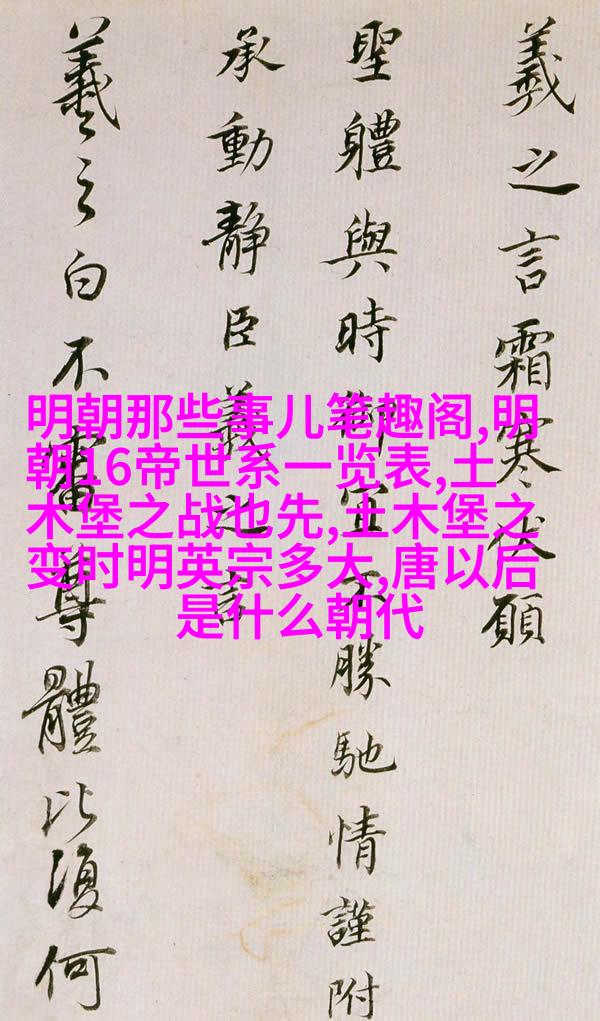 羲之言霜寒伏願
聖體與時御宜不勝馳情謹附
承動靜臣羲之言
羲之白不審尊體比復何
明朝那些事儿笔趣阁,明
朝16帝世系一览表,土
木堡之战也先,土木堡之
变时明英宗多大,唐以后
是什么朝代